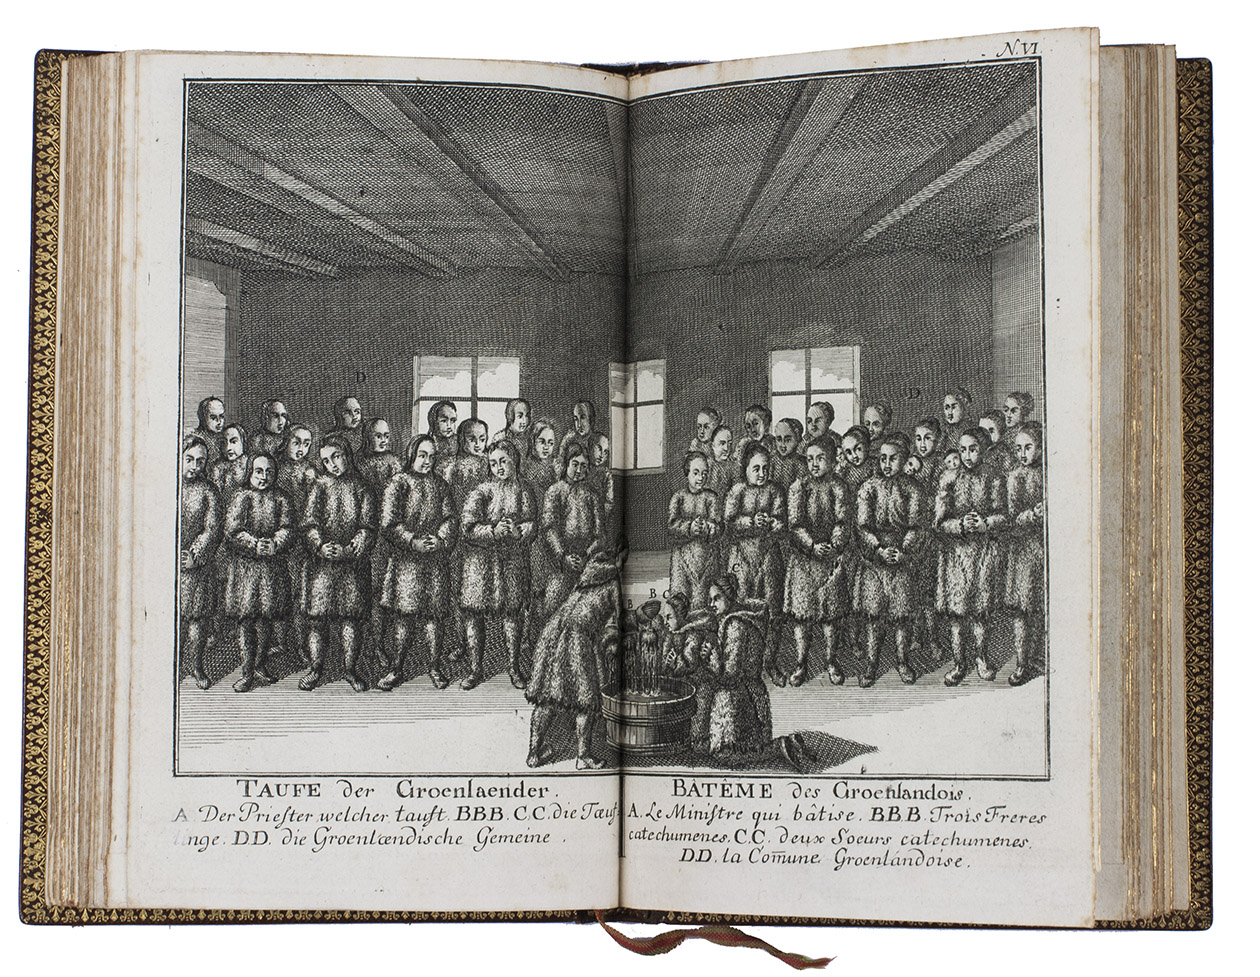 N. VI.
D
D
C
B C
B
TAUFE der Groenlaender.
A Der Prieſter welcher tauft. BBB. C.C. die Tœuf-
linge. D.D. die Groenlœndische Gemeine.
BÂTÊME des Groenlandois.
A. Le Miniſtre qui bâtise. B.B.B. Trois Freres
catechumenes. C.C. deux Soeurs catechumenes.
D.D. la Com̄une Groenlándoise.